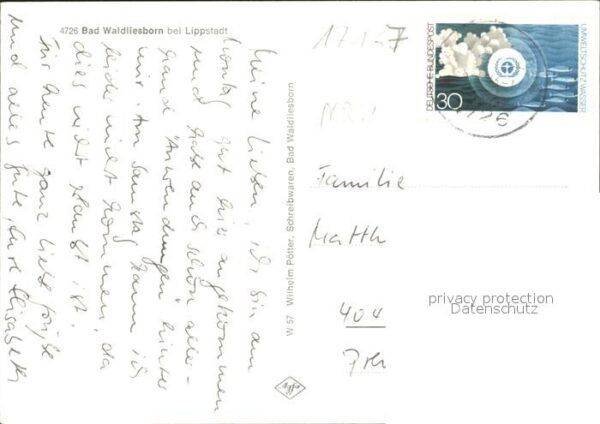 4726 Bad Waldliesborn bei Lippstadt
Meine Lieben, ich bin am
Montag gut hier angekommen
und habe auch schon aller-
hand "Anwendungen" hinter
mir. Am Samstag kann ich
leider nicht kommen, da
dies nicht erlaubt ist.
Für heute ganz liebe Grüße
und alles Gute, Eure Elisabeth
W 57 Wilhelm Pötter, Schreibwaren, Bad Waldliesborn
Agfa
DEUTSCHE BUNDESPOST
30
UMWELTSCHUTZ: WASSER
4726
Familie
Matth
404
privacy protection
Datenschutz